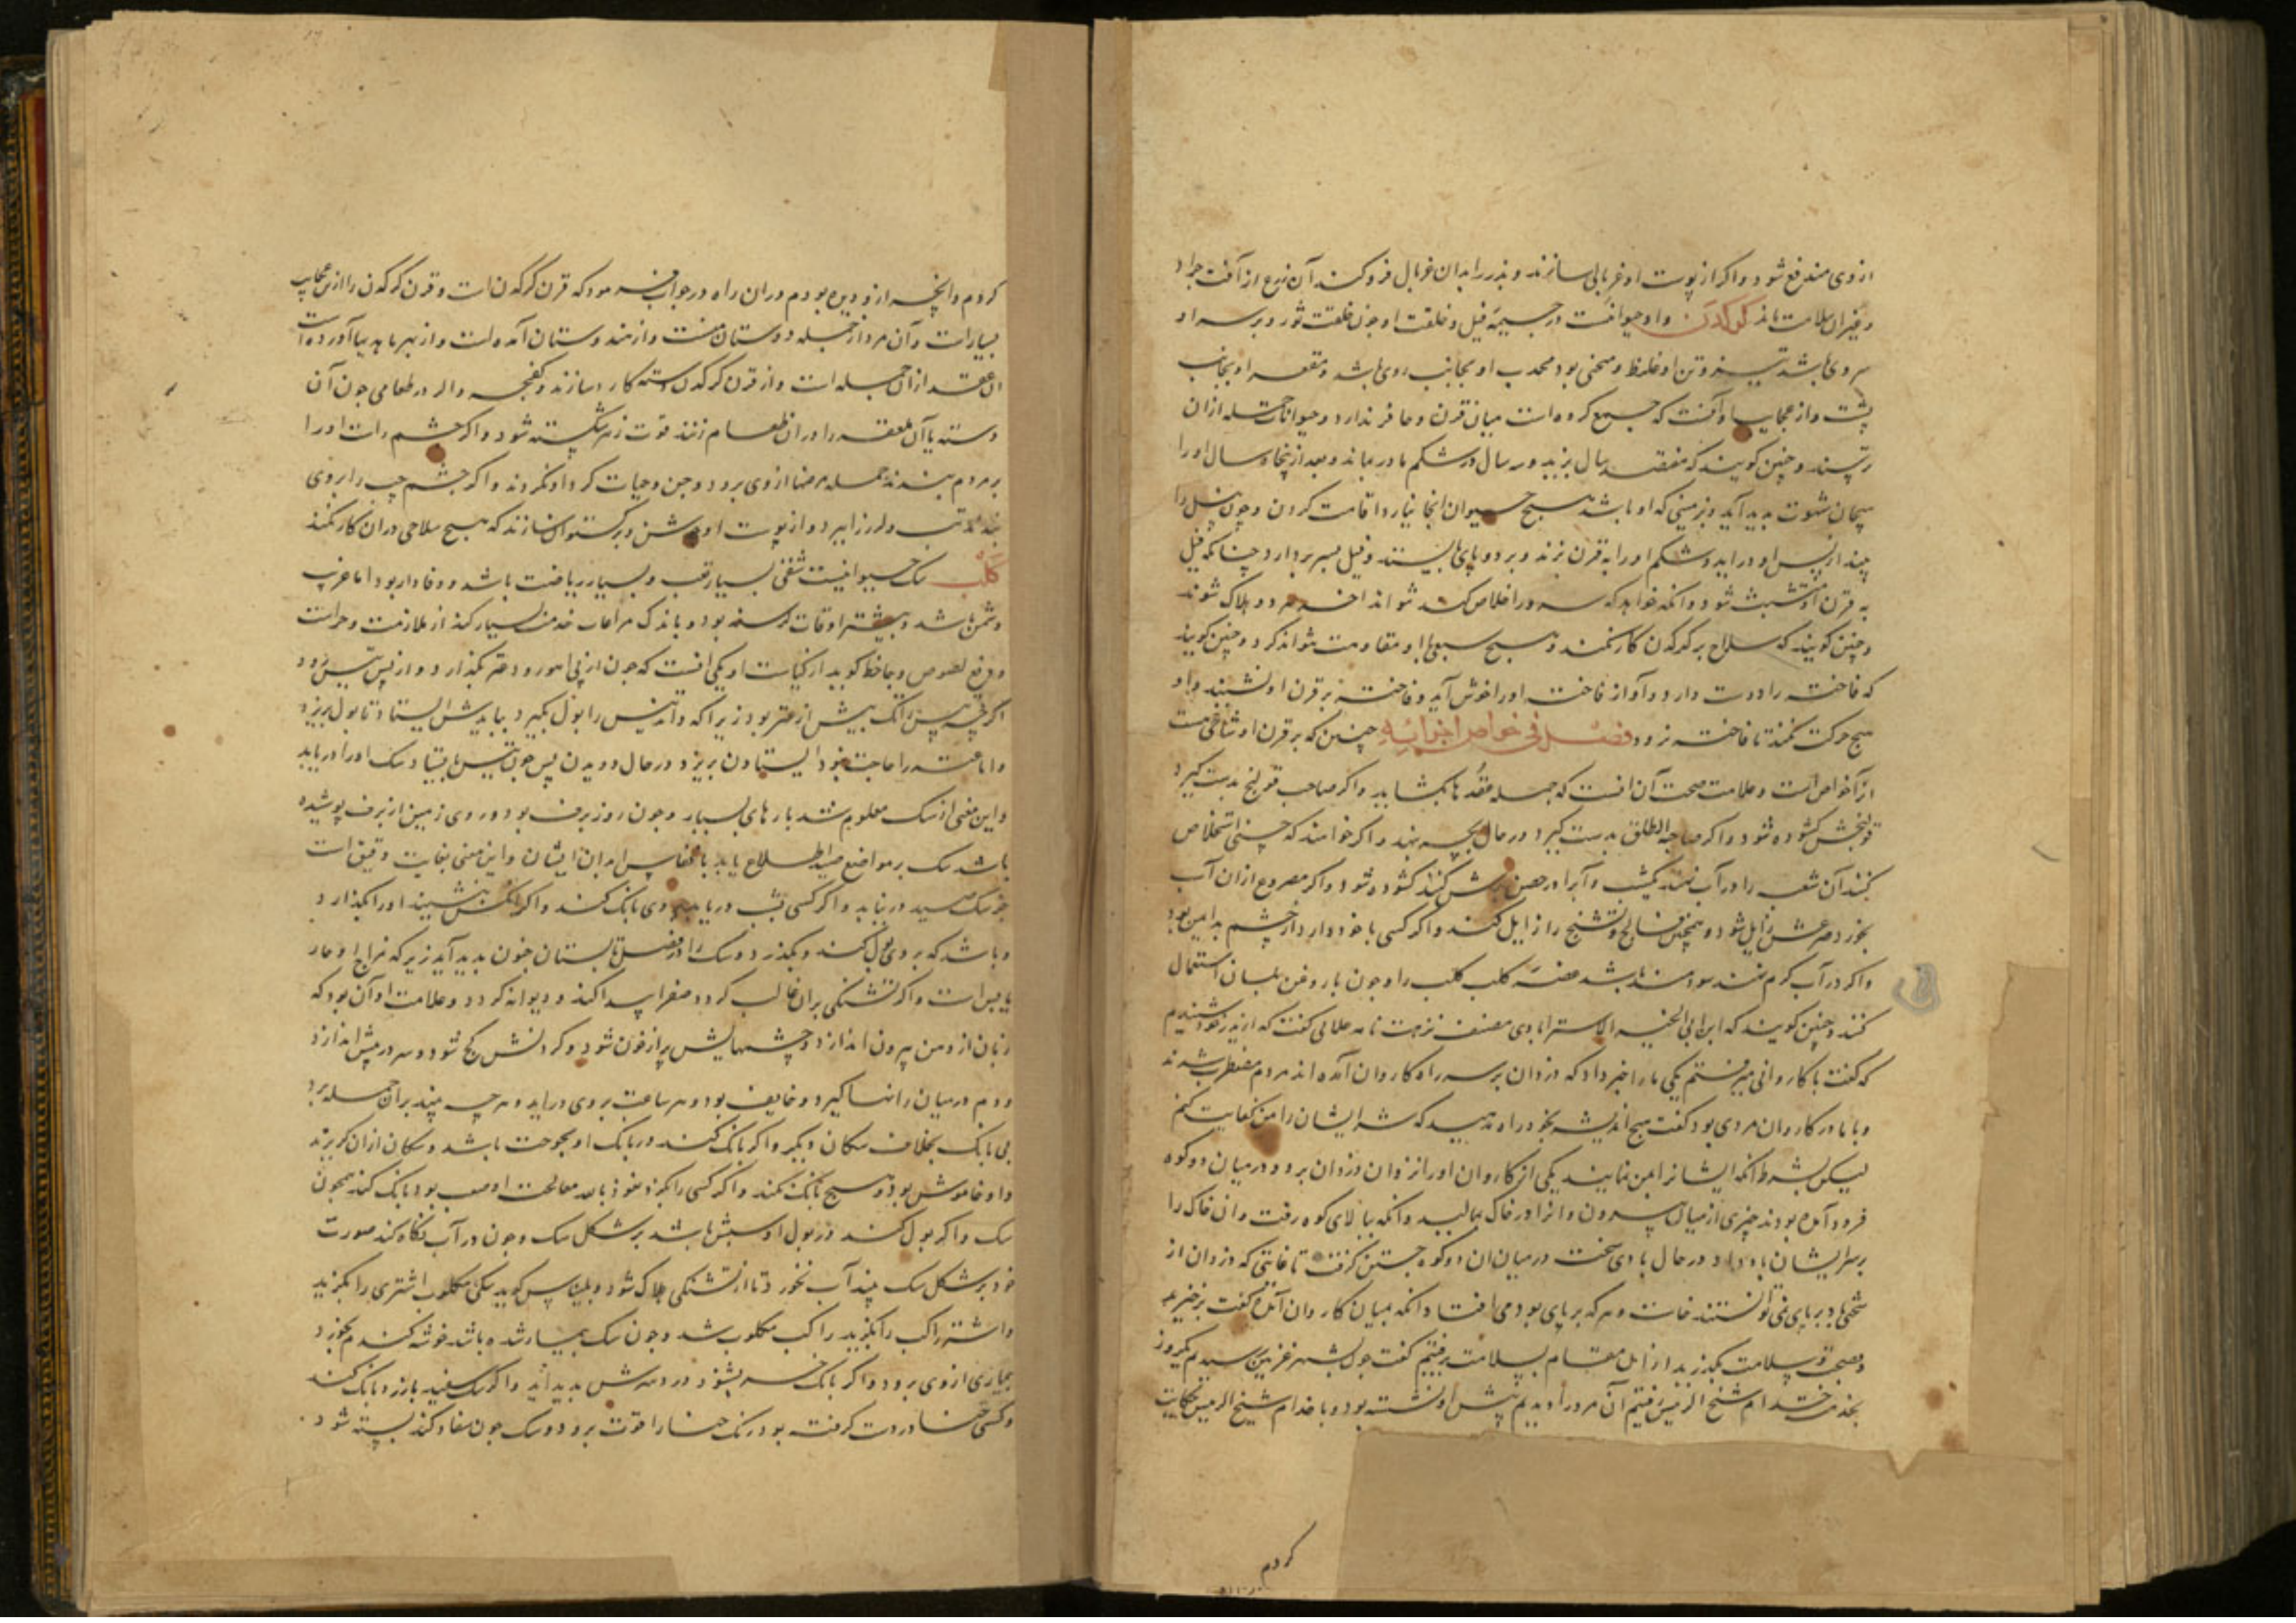 ازوی مندفع شود و اکر از پوست او غربالی سازند و بذر را بدان غربال فرو کنند آن زرع از آفت جراد
و غیر آن سلامت ماند کرکدن و او حیوانیست در جسیمه فیل و خلقت او چون خلقت ثور و بر سر او
سروی باشد تیز و تن او غلیظ و منحنی بود محدب او بجانب روی باشد و مقعر او بجانب
پشت و از عجایب او آنست که جمع کرده است میان قرن و حافر ندارد و حیوانات جمله از ان
ترسند و چنین کویند که هفتصد سال بزید و سه سال در شکم مادر بماند و بعد از پنجاه سال او را
هیجان شهوت بدید آید و بزمینی که او باشد هیچ حیوان انجا نیارد اقامت کردن و چون فیل را
بیند از پس او دراید و شکم او را به قرن بزند و بر دو پای بایستد و فیل بسر بردارد چنانکه فیل
به قرن او متشبث شود و انکه خواهد که سر را خلاص کند نتواند اخر هر دو هلاک شوند
و چنین کویند که سلاح بر کرکدن کار نکند و هیچ سبعی با او مقاومت نتواند کرد و چنین کویند
که فاخته را دوست دارد و آواز فاخته او را خوش آید و فاخته بر قرن او نشیند و او
هیچ حرکت نکند تا فاخته نرود فصل فی خواص اجزائه چنین که بر قرن او شاخی هست
از آن خواص است و علامت صحت آن انست که جمله عقدها بکشاید و اکر صاحب قولنج بدست کیرد
قولنجش کشوده شود و اکر صاحبة الطلق بدست کیرد در حال بچه بنهد و اکر خواهند که چیزی استخلاص
کنند آن شعبه را در آب نهند یکشب و آبرا در حصن برش کنند کشوده شود و اکر مصروع ازان آب
بخورد صرعش زایل شود و همچنین فالج و تشنج را زایل کند و اکر کسی با خود دارد از چشم بد ایمن بود
و اکر در آب کرم نهند سودمند باشد عضه کلب کلب را و چون با روغن بلسان استعمال
کنند و چنین کویند که ابن ابی الخیر الاسترابادی مصنف نزهت نامه علائی کفت که از پدر خود شنیدم
که کفت با کاروانی میرفتم یکی ما را خبر داد که دزدان بر سر راه کاروان آمده اند مردم مضطرب شدند
و با ما در کاروان مردی بود کفت هیچ اندیشه بخود راه ندهید که شر ایشان را من کفایت کنم
لیکن بشرط انکه ایشانرا بمن نمایند یکی از کاروان او را نزد آن دزدان برد و در میان دو کوه
فرود آمده بودند چیزی از میان بیرون و انرا در خاک بمالید و انکه ببالای کوه رفت و ان خاک را
بر سر ایشان باد داد در حال بادی سخت در میان ان دو کوه جستن کرفت تا غایتی که دزدان از
سختی باد بر پای نمی توانستند خاست و هر که بر پای بود می افتاد انکه بمیان کاروان آمد و کفت برخیزید
و بصحت و سلامت بکذرید از این مقام بسلامت برفتیم کفت چون بشهر غزنین رسیدیم یکروز
بخدمت خدام شیخ الرئیس رفتیم آن مرد را دیدیم پیش او نشسته بود و با خدام شیخ الرئیس حکایت
کردم
کردم وانچه ازو دیده بودم دران راه در جواب فرمود که قرن کرکدن است و قرن کرکدن را ازین عجایب
بسیار است و آن مرد از جمله دوستان منست و از هندوستان آمده است و از بهر ما هدیها آورده است
ان عقد از ان جمله است و از قرن کرکدن دسته کارد سازند و کفچه و اکر در طعامی چون آن
دسته یا آن ملعقه را در ان طعام زنند قوت زهر شکسته شود و اکر چشم راست او را
بر مردم بندند جمله مرضها ازوی برود و جن و حیات کرد او نکردند و اکر چشم چپ را بروی
بندند تب ولرز را ببرد و از پوست او جوشن و برکستوان سازند که هیچ سلاحی دران کار نکند
کلب سک حیوانیست شفقی بسیار تعب و بسیار ریاضت باشد و وفادار بود اما غریب
دشمن باشد و بیشتر اوقات کرسنه بود و باندک مراعات خدمت بسیار کند از ملازمت و حراست
و دفع لصوص و جاحظ کوید از کیاست او یکی انست که چون از پی اهو رود عنز بکذارد و از پس تیس رود
اکرچه تیس را تک بیش از عنز بود زیرا که داند تیس را بول بکیرد بباید ایستاد تا بول بریزد
و اما عنز را حاجت نبود ایستادن بریزد در حال دویدن پس چون تیس بایستاد سک او را دریابد
و این معنی از سک معلوم شد بارهای بسیار و چون روز برف بود و روی زمین از برف پوشیده
باشد سک بر مواضع صید اطلاع یابد بانفاس و ابدان ایشان و این معنی بغایت دقیق است
جز سک صید درنیابد و اکر کسی بشب دریابد بروی بانک کند و اکر انکس بنشیند او را بکذارد
و باشد که بروی بول کند و بکذرد و سک را در فصل تابستان جنون بدید آید زیرا که مزاج او حار
یابس است و اکر تشنکی بران غالب کردد صفرا پیدا کند و دیوانه کردد و علامت او آن بود که
زبان از دهن بیرون اندازد و چشمهایش پر از خون شود و کردنش کج شود و سر در پیش اندازد
و دم در میان رانها کیرد و خایف بود و هر ساعت بروی دراید و هر چه بیند بران حمله برد
بی بانک بخلاف سکان دیکر و اکر بانک کند در بانک او بحوحت باشد و سکان ازان کریزند
و او خاموش بود و هیچ بانک نکند و اکر کسی را بکزد نعوذ بالله معالجت او صعب بود بانک کند همچون
سک و اکر بول کند در بول او سبتش باشد بر شکل سک و چون در آب نکاه کند صورت
خود بر شکل سک بیند آب نخورد تا از تشنکی هلاک شود و بلیناس کوید سکی مکلوب اشتری را بکزید
و اشتر راکب را بکزید راکب مکلوب شد و چون سک بیمار شده باشد خوشه کندم بخورد
بیماری ازوی برود و اکر بانک خر بشنود درد سرش بدید آید و اکر سک سفید بلرزد بانک کند
و کسی حنا در دست کرفته بود رنک حنا را قوت برود و سک چون سفاد کند بسته شود